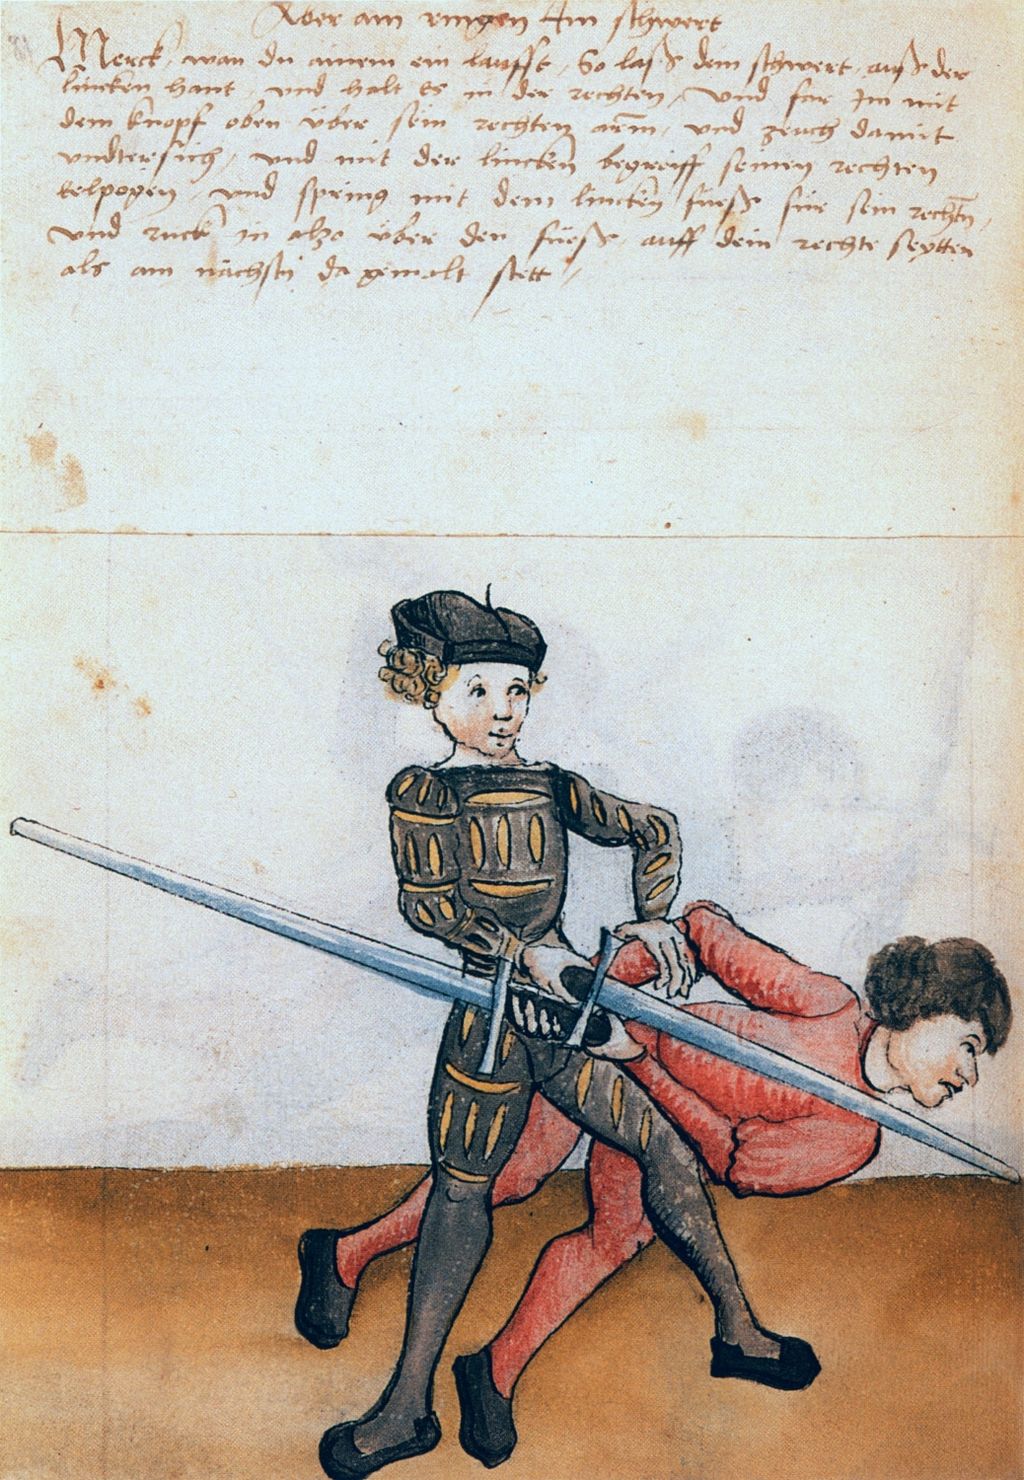 Aber ain ringen Im schwert
Merck, wan du ainem ein lauffst, So lass dein schwert, auss der
lincken hant, und halt es in der rechten, und far Im mit
dem knopf oben über sein rechten arm, und zeuch damit
undtersich, und mit der lincken begreiff seinen rechten
elpogen, und spring mit dem lincken fuess für sein rechtn,
und ruck in also über den fuess, auff dein rechte seytten
als am nächstn da gemalt stett,